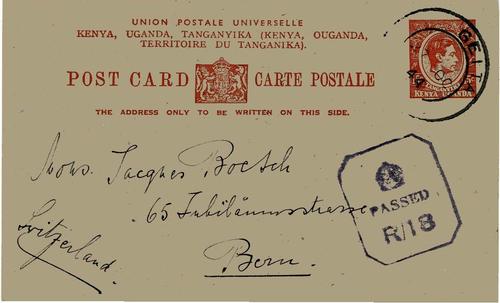 UNION POSTALE UNIVERSELLE
KENYA, UGANDA, TANGANYIKA (KENYA, OUGANDA,
TERRITOIRE DU TANGANIKA).
POST CARD CARTE POSTALE
THE ADDRESS ONLY TO BE WRITTEN ON THIS SIDE.
GEITA
KENYA UGANDA
Mons. Jacques Boesch
65 Jubiläumsstrasse
Bern.
Switzerland.
PASSED
R/18